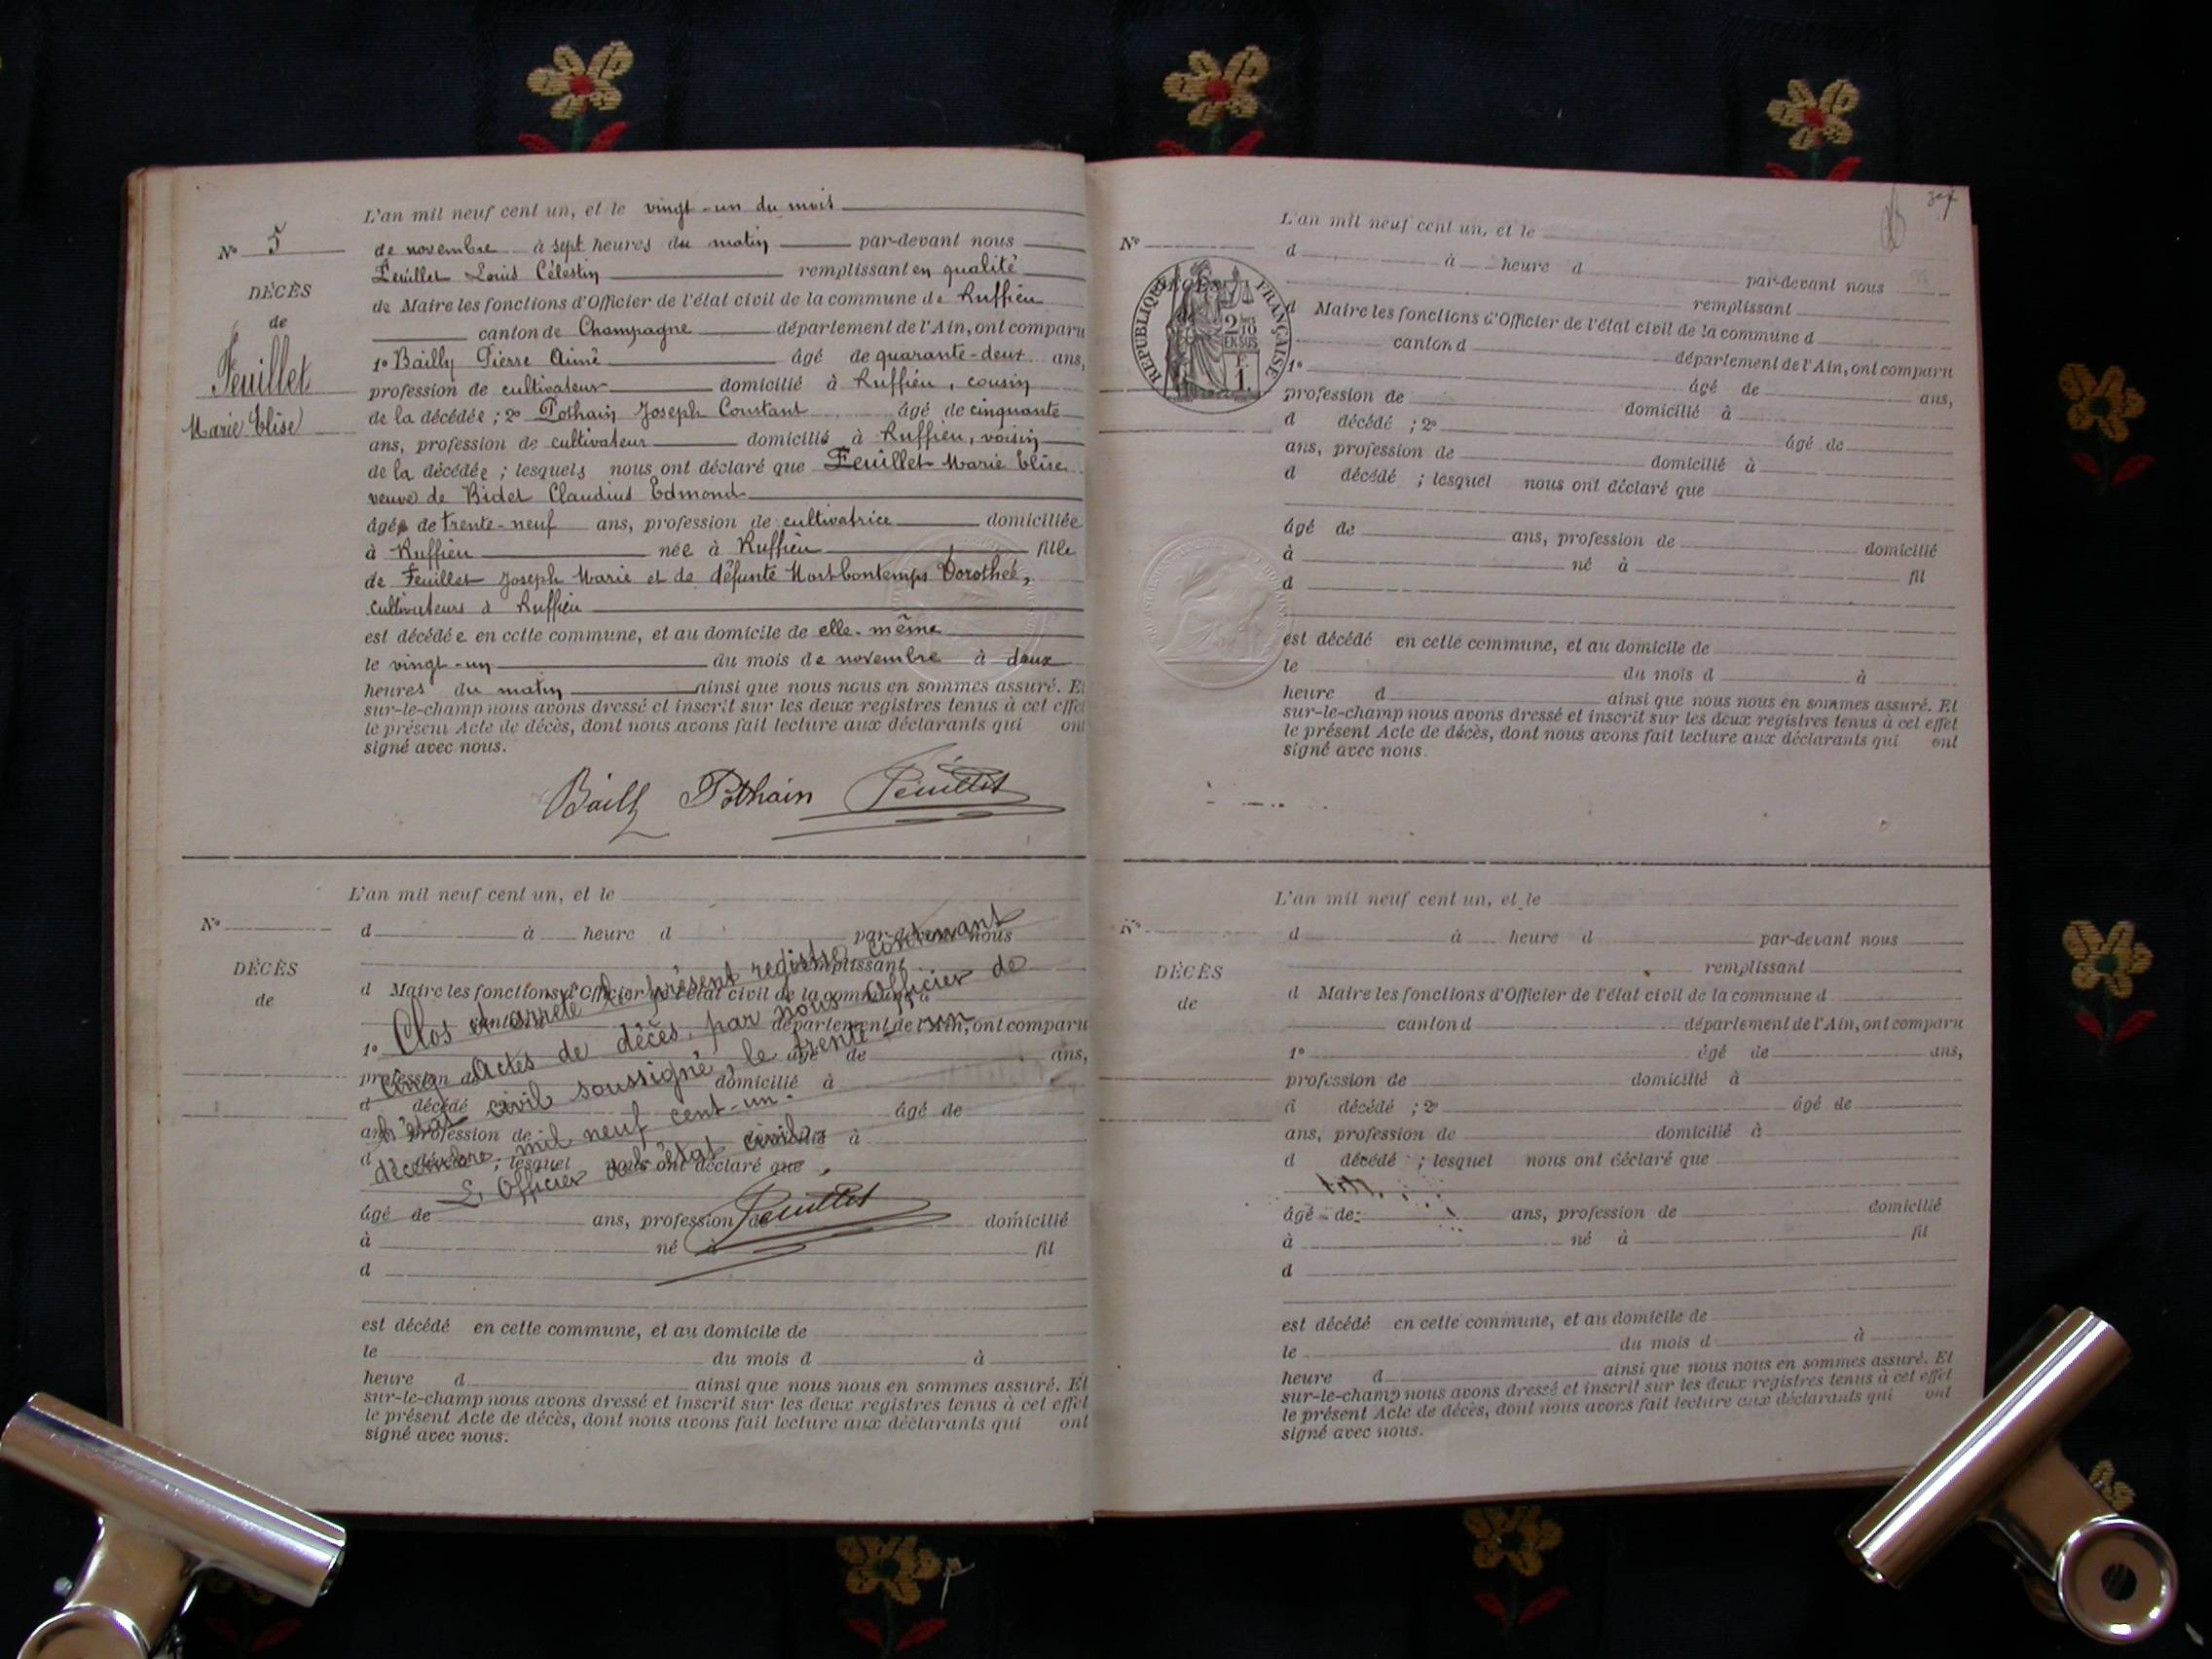 L'an mil neuf cent un, et le vingt-un du mois
N° 5
de novembre à sept heures du matin par-devant nous
Feuillet Louis Célestin remplissant en qualité
DÉCÈS
de Maire les fonctions d'Officier de l'état civil de la commune de Ruffieu
de
canton de Champagne département de l'Ain, ont comparu
Feuillet
Marie Elise
1° Bailly Pierre Aimé âgé de quarante-deux ans,
profession de cultivateur domicilié à Ruffieu, cousin
de la décédée ; 2° Pothain Joseph Constant âgé de cinquante
ans, profession de cultivateur domicilié à Ruffieu, voisin
de la décédée ; lesquels nous ont déclaré que Feuillet Marie Elise
veuve de Bidet Claudius Edmond
âgée de trente-neuf ans, profession de cultivatrice domiciliée
à Ruffieu née à Ruffieu fille
de Feuillet Joseph Marie et de défunte Monbontemps Dorothée,
cultivateurs à Ruffieu
est décédée en cette commune, et au domicile de elle-même
le vingt-un du mois de novembre à deux
heures du matin ainsi que nous nous en sommes assuré. Et
sur-le-champ nous avons dressé et inscrit sur les deux registres tenus à cet effet
le présent Acte de décès, dont nous avons fait lecture aux déclarants qui ont
signé avec nous.
Bailly Pothain Feuillet
L'an mil neuf cent un, et le
N°
d à heure d par-devant nous
remplissant
DÉCÈS
de
d Maire les fonctions d'Officier de l'état civil de la commune d
canton d département de l'Ain, ont comparu
1° âgé de ans,
profession de domicilié à
d décédé âgé de
ans, profession de domicilié à
d décédé ; lesquel nous ont déclaré que
Clos et arrêté le présent registre contenant
cinq Actes de décès, par nous Officier de
l'état civil soussigné, le trente-un
décembre mil neuf cent-un.
L'Officier de l'état civil,
Feuillet
âgé de ans, profession de domicilié
à né à fil
d
est décédé en cette commune, et au domicile de
le du mois d à
heure d ainsi que nous nous en sommes assuré. Et
sur-le-champ nous avons dressé et inscrit sur les deux registres tenus à cet effet
le présent Acte de décès, dont nous avons fait lecture aux déclarants qui ont
signé avec nous.
L'an mil neuf cent un, et le
N°
d à heure d par-devant nous
remplissant
DÉCÈS
RÉPUBLIQUE FRANÇAISE
2/10 EN SUS
F. 1.
d Maire les fonctions d'Officier de l'état civil de la commune d
canton d département de l'Ain, ont comparu
1° âgé de ans,
profession de domicilié à
d décédé ; 2° âgé de
ans, profession de domicilié à
d décédé ; lesquel nous ont déclaré que
âgé de ans, profession de domicilié
à né à fil
d
est décédé en cette commune, et au domicile de
le du mois d à
heure d ainsi que nous nous en sommes assuré. Et
sur-le-champ nous avons dressé et inscrit sur les deux registres tenus à cet effet
le présent Acte de décès, dont nous avons fait lecture aux déclarants qui ont
signé avec nous.
L'an mil neuf cent un, et le
N°
d à heure d par-devant nous
remplissant
DÉCÈS
de
d Maire les fonctions d'Officier de l'état civil de la commune d
canton d département de l'Ain, ont comparu
1° âgé de ans,
profession de domicilié à
d décédé ; 2° âgé de
ans, profession de domicilié à
d décédé ; lesquel nous ont déclaré que
âgé de ans, profession de domicilié
à né à fil
d
est décédé en cette commune, et au domicile de
le du mois d à
heure d ainsi que nous nous en sommes assuré. Et
sur-le-champ nous avons dressé et inscrit sur les deux registres tenus à cet effet
le présent Acte de décès, dont nous avons fait lecture aux déclarants qui ont
signé avec nous.